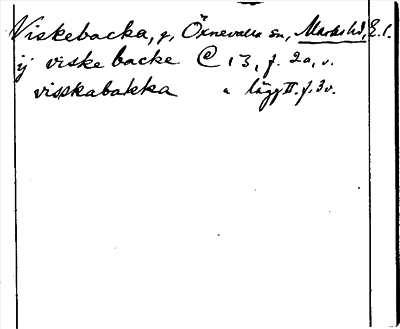 Viskebacka, g, Öxnevalla sn, Marks hd, E.l.
ij viske backe C 13, f. 20, v.
visskabakka " lägg II. f. 3v.